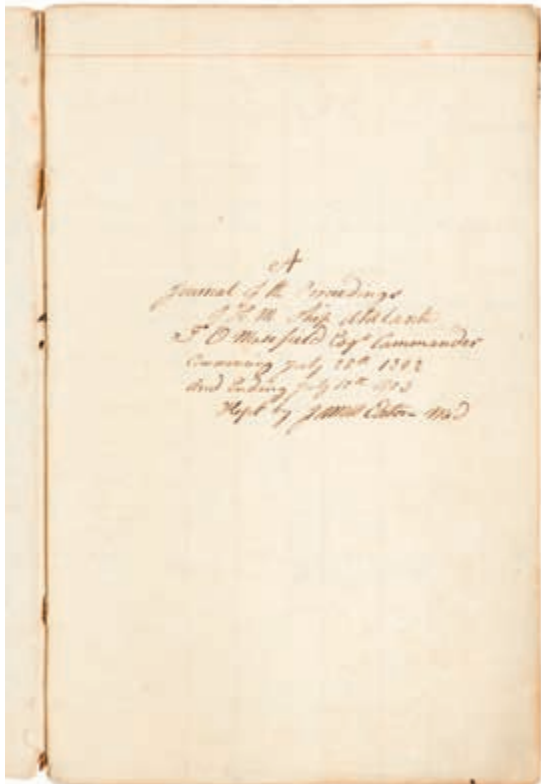 A
Journal of the Proceedings
of H. M. Ship Atalante
J O Masefield Esqr Commander
Commencing July 28th 1802
And Ending July 10th 1803
Kept by James Eaton Mid